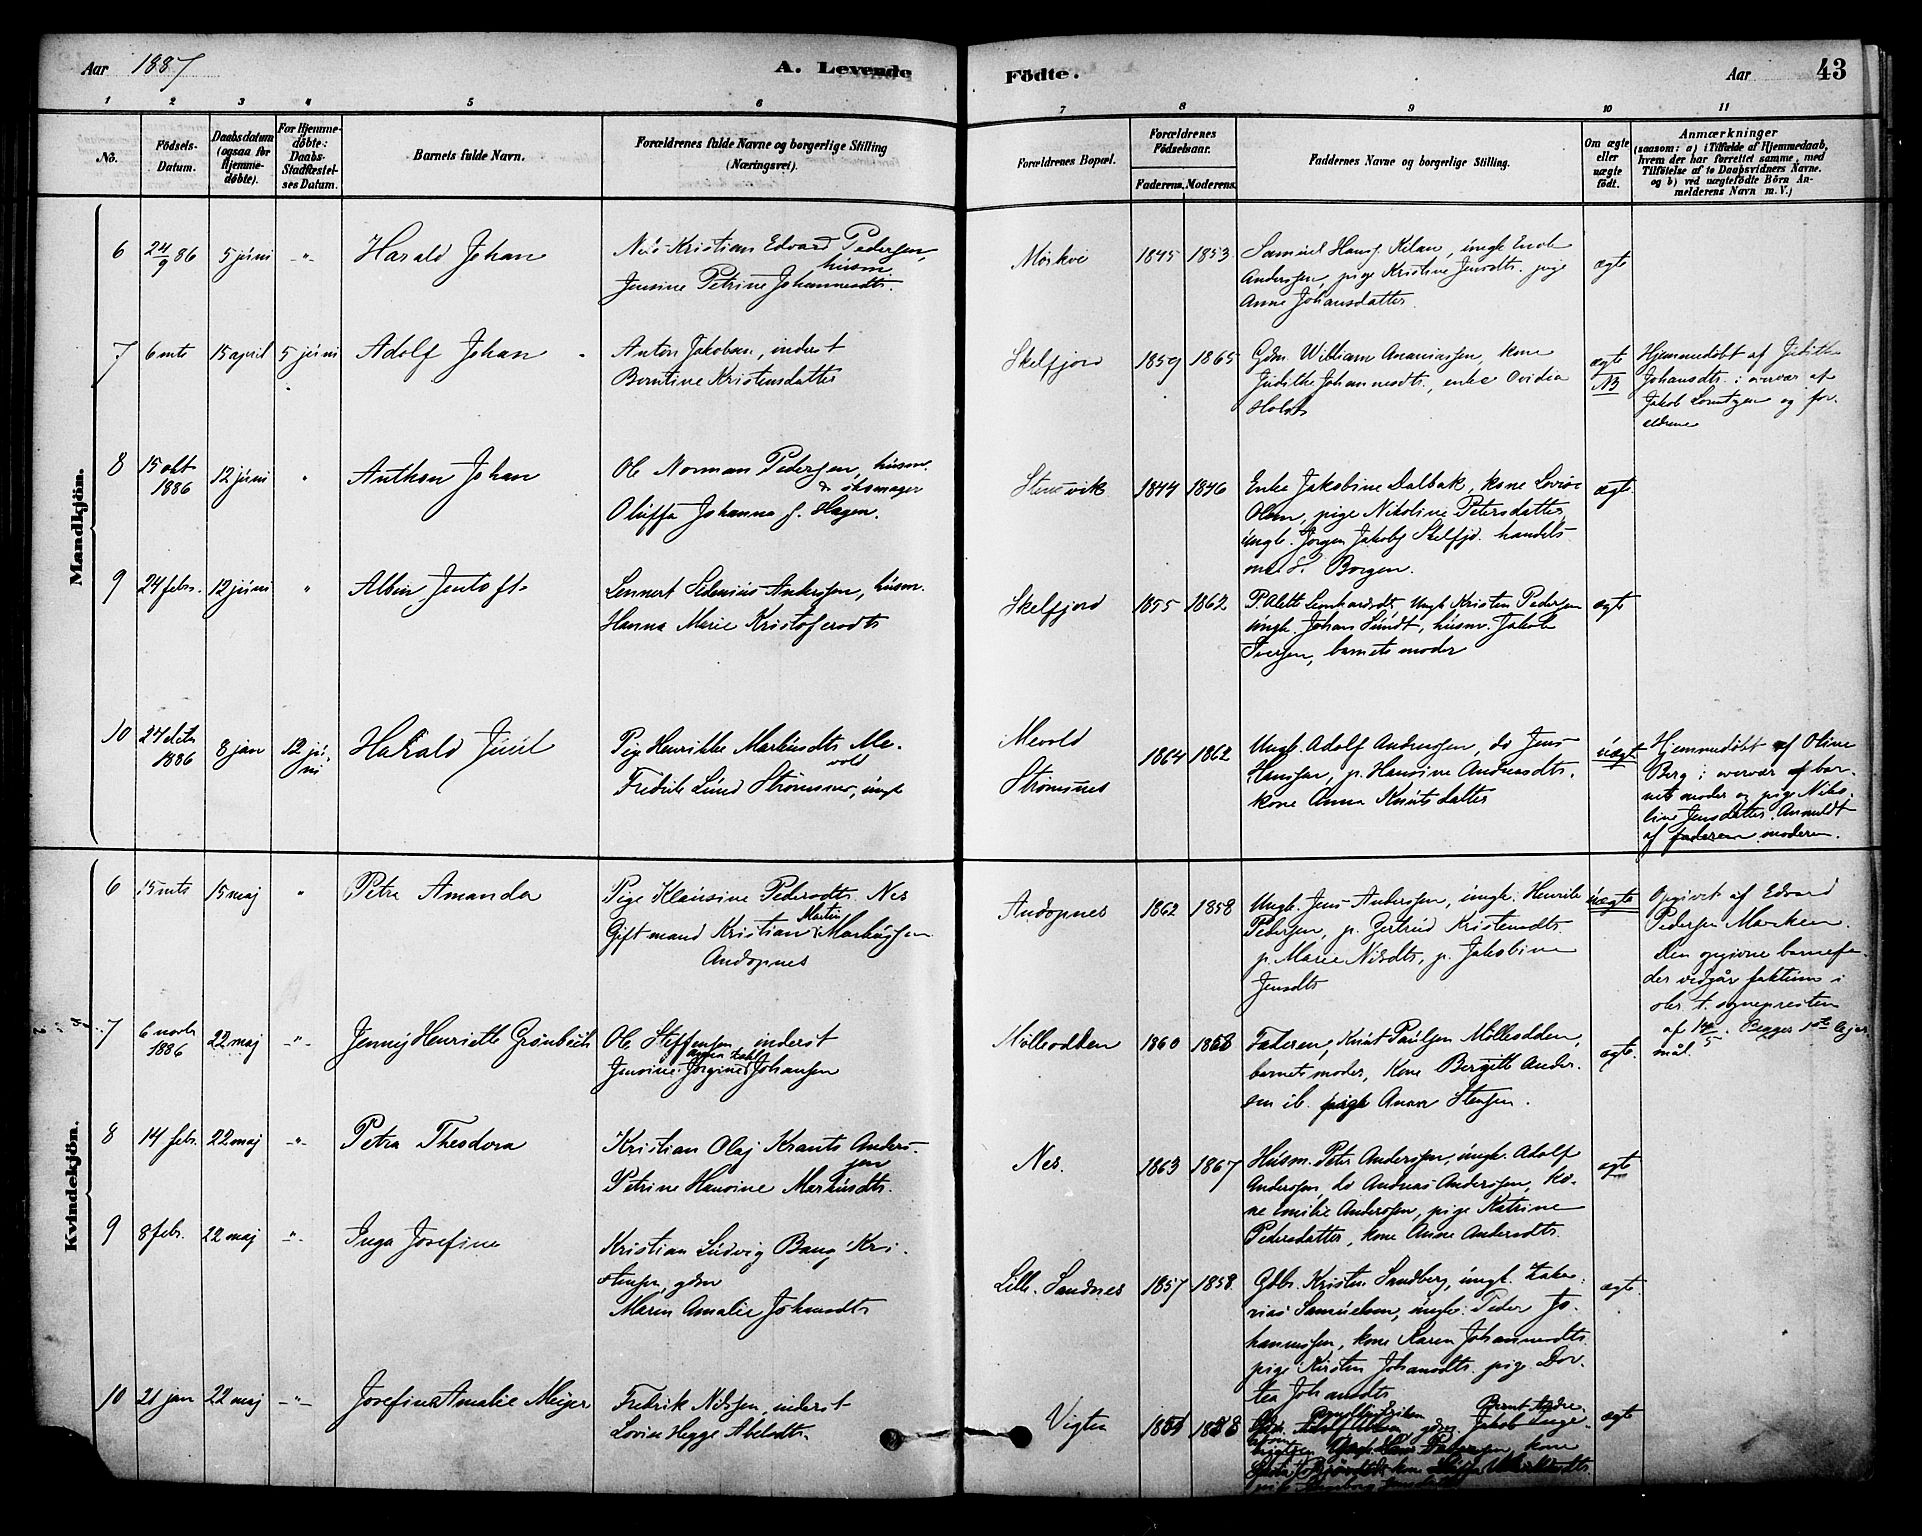 Aar 1887
A. Levende
Födte.
Aar
43
1 2 3 4 5 6 7 8 9 10 11
No.
Födsels-
Datum.
Daabsdatum
(ogsaa for
Hjemme-
döbte).
For Hjemme-
döbte:
Daabs-
Stadfæstel-
ses Datum.
Barnets fulde Navn.
Forældrenes fulde Navne og borgerlige Stilling
(Næringsvei).
Forældrenes Bopæl.
Forældrenes
Födselsaar.
Faderens. Moderens.
Faddernes Navne og borgerlige Stilling.
Om ægte
eller
uægte
födt.
Anmærkninger
(saasom: a) i Tilfælde af Hjemmedaab,
hvem der har forrettet samme, med
Tilföielse af to Daabsvidners Navne.
og b) ved uægtefödte Börn An-
melderens Navn m. V.)
Mandkjön.
6 24/9 86 5 juni -"- Harald Johan
Kristian Edvard Pedersen,
husm.
Jensine Petrine Johannesdtr.
1845 1853
Samuel Hanss. Kilan, ungk.
Anderssen, pige Kristine Jensdtr. pige
Anne Johansdatter
ægte
7 6 mts 15 april 5 juni Adolf Johan
Anton Jakobsen, inderst
Berntine Kristensdatter
Skelfjord 1859 1865
Gdm. William Ananiassen, kone
Judithe Johannesdtr., enke Ovidia
Holst
ægte
NB
Hjemmedöbt af Judithe
Johansdtr. i overvær af
Jakob Lorntzen og for-
eldrene
8 15 okt 1886 12 juni " Anthon Johan
Ole Norman Pedersen, husm.
Oluffa Johanna f. Hagen.
1844 1846
Enke Jakobine Dalbak, kone
Olsen, pige Nikoline Petersdatter,
ungk. Jörgen Jakobs. Skelfjd. handels-
Borgen.
ægte
9 24 febr. 12 juni " Albin Jentoft
Lennert Sidenius Anderssen, husm.
Hanna Marie Kristofersdtr
Skelfjord 1855 1862
P. Alette Leonhardsdtr, Ungk Kristen Pedersen
ungk. Johan Sundt, husm. Jakob
Iversen, barnets moder
ægte
10 24 1886 8 jan 12 juni Harald Juul
Pige Henrikke Markusdtr Me-
vold
Fredrik Lund Strömsnes, ungk
Mevold
Strömsnes
1864 1862
Ungk. Adolf Anderssen, do Jens
Hanssen, p. Hansine Andreasdtr.
kone Anna Knutsdatter
uægte
Hjemmedöbt af Oline
Berg i overvær af bar-
nets moder og pige Niko-
line Jensdatter. Anmeldt
af faderen moderen.
Kvindekjön.
6 15 mts 15 maj " Petra Amanda
Pige Klausine Pedersdtr. Nes
Gift mand Kristian Martin Markussen
Andopnes
Andopnes 1862 1858
Ungk. Jens Anderssen, ungk. Henrik
Pedersen, p. Gertrud Kristensdtr.
p. Marie Nilsdtr, p. Jakobine
Jensdtr
uægte
Opgivet af Edvard
Pedersen
Den opgivne barnefa-
der vedgår faktum i
af 14/5.
mål.
7 6 novbr 1886 22 maj -"- Jenny Henriette Grönbech
Ole Steffensen, inderst
Johansen
Mölleodden 1860 1858
Faderen, Knut Paulsen Mölleodden,
barnets moder, Kone Bergitte Ander-
sen ib. pige Anna Stensen.
ægte.
8 14 febr. 22 maj -"- Petra Theodora
Kristian Olaj Krants Anders-
sen
Petrine Hansine Markusdtr.
Nes. 1863 1867
Husm. Peter Anderssen, ungk. Adolf
Anderssen do Andreas Anderssen, ko-
ne Emilie Anderssen, pige Katrine
Pedersdatter, kone Anne Andersdtr.
ægte
9 8 febr. 22 maj -"- Inga Josefine
Kristian Ludvig Bang Kri-
stensen, gdm
Maren Amalie Johansdtr
Lille Sandnes 1857 1858
Gdbr. Kristen Sandberg, ungk. Zaka-
rias Samuelsen, ungk. Peder Jo-
hannessen, kone Karen Johannesdtr
pige Kirsten Johansdtr. pige Dor-
tea Johansdtr
ægte.
10 21 jan 22 maj -"- Josefine Amalie Meyer
Fredrik Nilssen, inderst
Lovise Hegge Abelsdtr.
Vigten 1858
kone
ægte